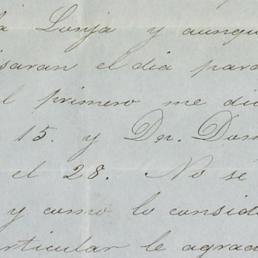 la Lonja y aunque
isaran el dia para
el primero me dic
15. y Dn. Dom
el 28. No se
y como lo consid
articular le agrad